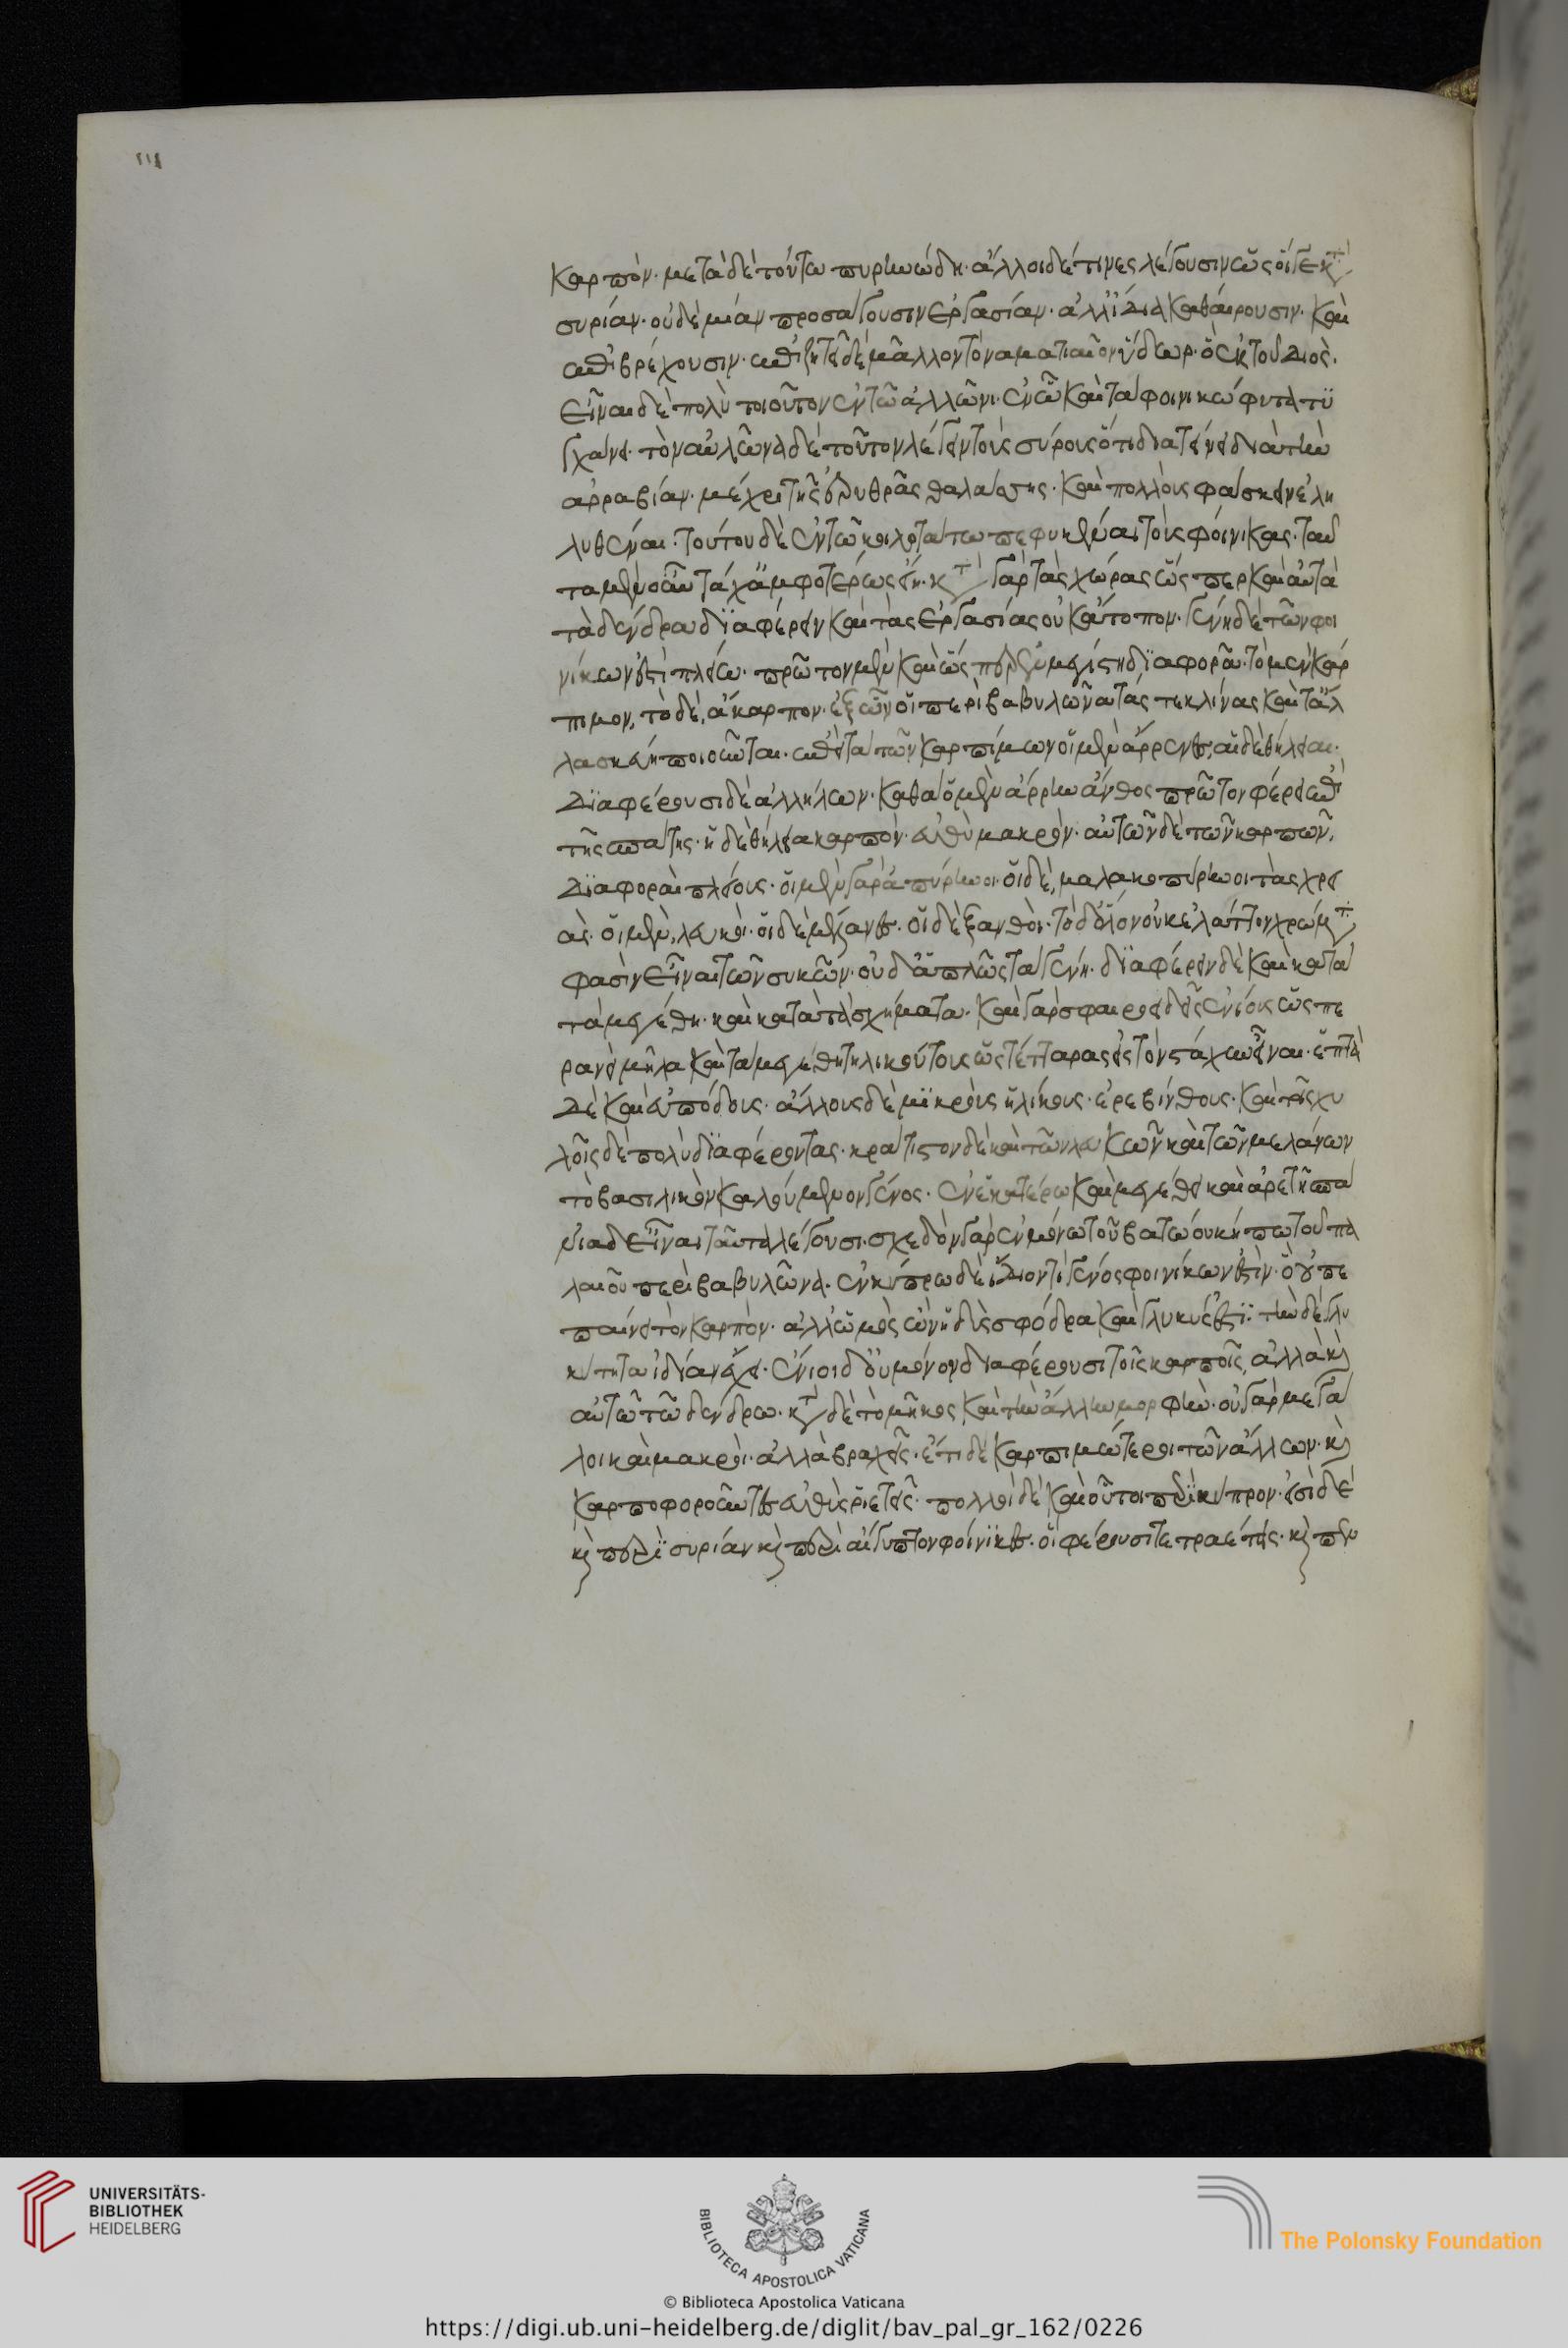 καρπὸν· μετὰ δὲ τοῦτω πυρηνώδη· ἄλλοι δέ τινες λέγουσιν ὡς οἵ γε κατὰ
συρίαν· οὐδὲ μίαν προσάγουσιν ἐργασίαν· ἀλλ' ἢ διακαθαίρουσιν· καὶ
ἐπιβρέχουσιν· ἐπιζητεῖ δὲ μᾶλλον τὸ ναματιαῖον ὕδωρ· ὃ ἐκ τοῦ διὸς·
εἶναι δὲ πολὺ τοιοῦτον ἐν τῶ ἀλλῶνι· ἐν ὧ καὶ τὰ φοινικόφυτα τυ
γχάνει· τὸν αὐλῶνα δὲ τοῦτον λέγειν τοὺς σύρους ὅτι διατείνει διὰ τὴν
ἀρραβίαν· μέχρι τῆς ἐρυθρᾶς θαλάσσης· καὶ πολλοὺς φάσκειν ἐλη
λυθέναι· τούτου δὲ ἐν τῶ κοιλοτάτω πεφυκέναι τοὺς φοίνικας· ταῦ
τα μὲν οὖν τάχ' ἀμφοτέρως εἴη· κατὰ γὰρ τὰς χώρας ὥσπερ καὶ αὐτὰ
τὰ δένδρα διαφέρειν καὶ τὰς ἐργασίας οὐκ ἄτοπον· γένη δὲ τῶν φοι
νίκων ἐστὶ πλείω· πρῶτον μὲν καὶ ὥσπερ ἐν μεγίστη διαφορᾶ· τὸ μὲν κάρ
πιμον, τὸ δὲ, ἄκαρπον· ἐξ ὧν οἱ περὶ βαβυλῶνα τάς τε κλίνας καὶ τἄλ
λα σκεύη ποιοῦνται· ἔπειτα τῶν καρπίμων οἱ μὲν ἄρρενες, αἱ δὲ θήλειαι·
διαφέρουσι δὲ ἀλλήλων· καθὰ ὁ μὲν ἄρρην ἄνθος πρῶτον φέρει ἐπὶ
τῆς σπάθης· ἡ δὲ θήλεια καρπὸν· εὐθὺ μακρὸν· αὐτῶν δὲ τῶν καρπῶν,
διαφοραὶ πλείους· οἱ μὲν γὰρ ἀπύρηνοι· οἱ δὲ, μαλακοπύρηνοι τὰς χρόι
ὰς· οἱ μὲν, λευκοὶ· οἱ δὲ μέλανες· οἱ δὲ ξανθοὶ· τὸ δ' ὅλον οὐκ ἐλάττον χρώματα
φασὶν εἶναι τῶν συκῶν· οὐδ' ἁπλῶς τὰ γένη· διαφέρειν δὲ καὶ κατὰ
τὰ μεγέθη· καὶ κατὰ τὰ σχήματα· καὶ γὰρ σφαιροειδεῖς ἐνίοις ὥσπε
ρανεὶ μῆλα καὶ τὰ μεγέθη τηλικούτους ὡς τέτταρας εἰς τὸν στάχυν εἶναι· ἑπτὰ
δὲ καὶ εὐπόδους· ἄλλους δὲ μικροὺς ἡλίκους· ἐρεβίνθους· καὶ τοῖς χυ
λοῖς δὲ πολὺ διαφέροντας· κράτιστον δὲ καὶ τῶν λευκῶν καὶ τῶν μελάνων
τὸ βασιλικὸν καλούμενον γένος· ἐν ἑκατέρω καὶ μεγέθει καὶ ἀρετῆ σπά
νια δ' εἶναι ταῦτα λέγουσι· σχεδὸν γὰρ ἐν μόνω τοῦ βατώου κήπω τοῦ πα
λαιοῦ περὶ βαβυλῶνα· ἐν κύπρω δὲ ἴδιόν τι γένος φοινίκων ἐστὶν· ὃ οὐ πε
παίνει τὸν καρπὸν· ἀλλ' ὠμὸς ὢν ἡδὺς σφόδρα καὶ γλυκύς ἐστι· τὴν δὲ γλυ
κύτητα ἰδίαν ἔχει· ἔνιοι δ' οὐ μόνον διαφέρουσι τοῖς καρποῖς, ἀλλὰ καὶ
αὐτῶ τῶ δένδρω· κατὰ δὲ τὸ μῆκος καὶ τὴν ἄλλην μορφὴν· οὐ γὰρ μεγά
λοι καὶ μακροὶ· ἀλλὰ βραχεῖς· ἔτι δὲ καρπιμώτεροι τῶν ἄλλων· καὶ
καρποφοροῦντες εὐθὺς τριετεῖς· πολλοὶ δὲ καὶ οὗτοι περὶ κύπρον· εἰσὶ δὲ
καὶ περὶ συρίαν καὶ περὶ αἴγυπτον φοίνικες· οἳ φέρουσι τετραέτεις· καὶ πεν